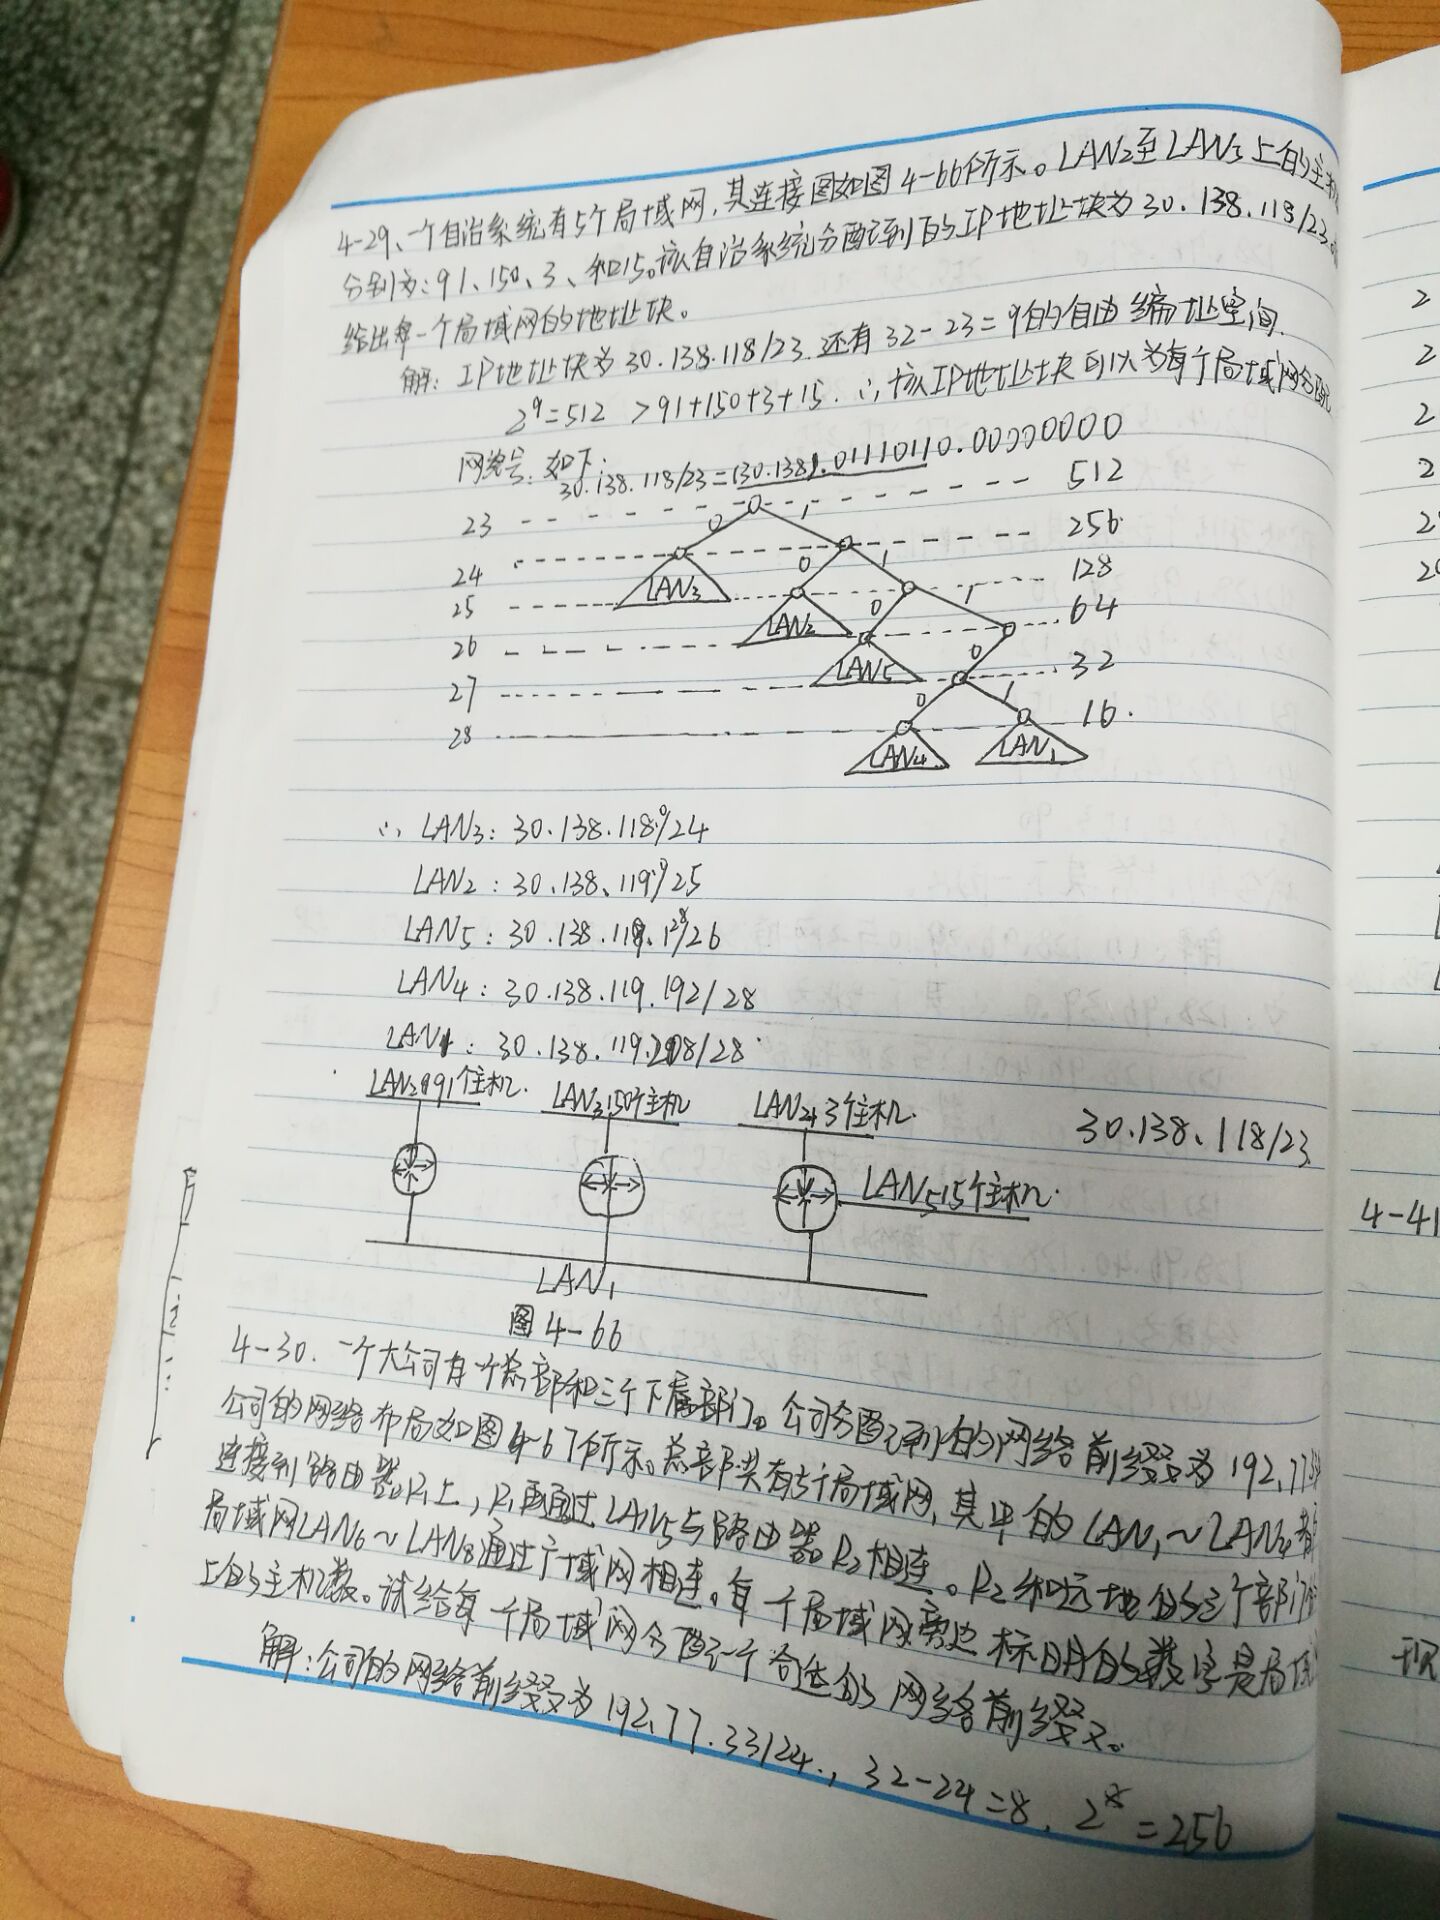 4-29、一个自治系统有5个局域网,其连接图如图4-66所示。LAN2至LAN5上的主机
分别为:91、150、3、和15。该自治系统分配到的IP地址块为30.138.118/23。
给出每一个局域网的地址块。
解: IP地址块为30.138.118/23 还有32-23=9的自由编址空间.
2⁹=512 >91+150+3+15. ∴该IP地址块可以为每个局域网分配
网络号:如下:
30.138.118/23=(30.138).01110110.00000000
23 0 1 512
24 0 1 256
25 LAN3 0 1 128
26 LAN2 0 64
27 LAN5 0 1 32
28 16
LAN4 LAN1
∴ LAN3: 30.138.118.0/24
LAN2: 30.138.119.0/25
LAN5: 30.138.119.128/26
LAN4: 30.138.119.192/28
LAN1: 30.138.119.208/28
LAN2 91个主机. LAN3 150个主机 LAN4 3个主机.
30.138.118/23
LAN5 15个主机.
LAN1
图4-66
4-30. 一个大公司有一个总部和三个下属部门。公司分配到的网络前缀为192.77
公司的网络布局如图4-67所示。总部共有5个局域网,其中的LAN1~LAN4都
连接到路由器R1上,R1再通过LAN5与路由器R2相连。R2和远地的三个部门的
局域网LAN6~LAN8通过广域网相连。每一个局域网旁边标明的数字是局域
上的主机数。试给每一个局域网分配一个合适的网络前缀。
解:公司的网络前缀为192.77.33/24., 32-24=8, 2⁸=256
4-41
2
2
2
2